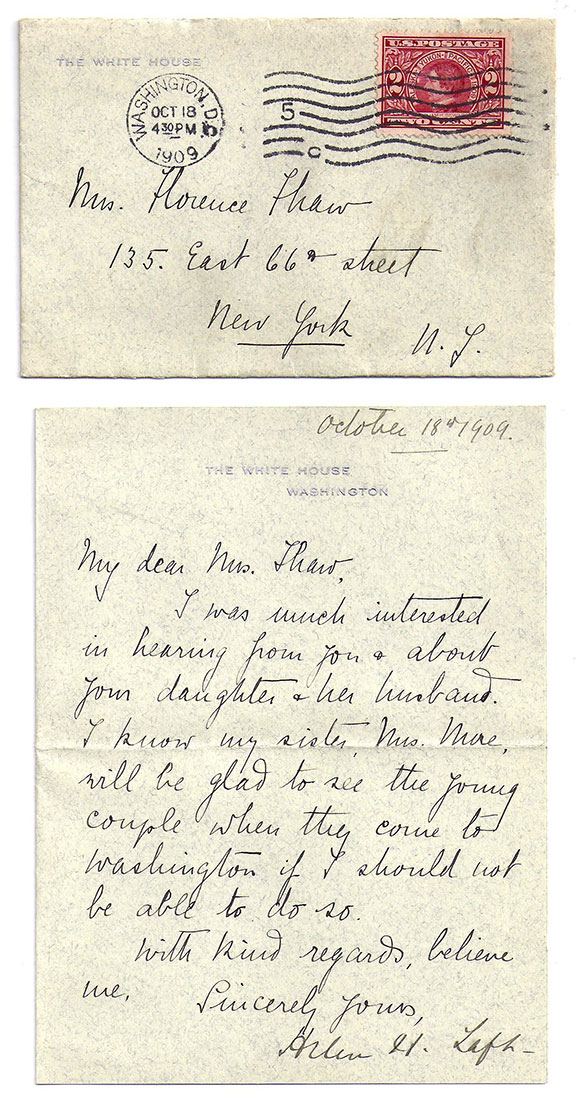 THE WHITE HOUSE
WASHINGTON, D.
OCT 18
430 PM
1909
5
C
U.S. POSTAGE
2 2
Mrs. Florence Thaw
135. East 66th street
New York
N. Y.
October 18th 1909.
THE WHITE HOUSE
WASHINGTON
My dear Mrs. Thaw,
I was much interested
in hearing from you & about
your daughter & her husband.
I know my sister, Mrs. More,
will be glad to see the young
couple when they come to
Washington if I should not
be able to do so.
With kind regards, believe
me,
Sincerely yours,
Helen H. Taft